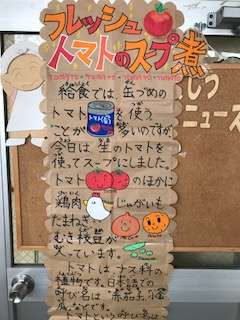 フレッシュ
トマトのスープ煮
TOMATO TOMATO TOMATO TOMATO
給食では、缶づめの
トマト を使う
ことが多いのですが、
今日は生のトマトを
使ってスープにしました。
トマト のほかに
鶏肉 じゃがいも
たまねぎ
むき枝豆が
入っています。
トマトは、ナス科の
植物で、日本語での
呼び名は「赤茄子」
などです。
トマトという呼び名は
ニュース